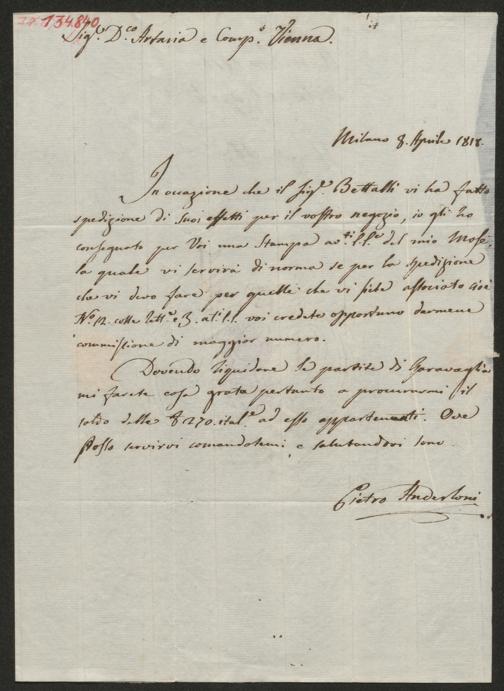 134.840
Sigr. Dco. Artaria e Compo. Vienna.
Milano 8. Aprile 1818.
In occazione che il Sigr. Bettalli vi ha fatto
spedizione di suoi effetti per il vostro negozio, io gli ho
consegnato per Voi una Stampa avti. l.lre del mio Mosè,
la quale vi servirà di norma se per la spedizione
che vi devo fare per quelle che vi siete associato cioè
No. 12. colle lette. e 3. avti l.l. voi credete opportuno darmene
commissione di maggior numero.
Dovendo liquidare la partita di Garavaglia
mi farete cosa grata pertanto a procurarmi il
saldo delle 270. itale. ad esso appartenenti. Ove
posso servirvi comandatemi e salutandovi sono
Pietro Anderloni